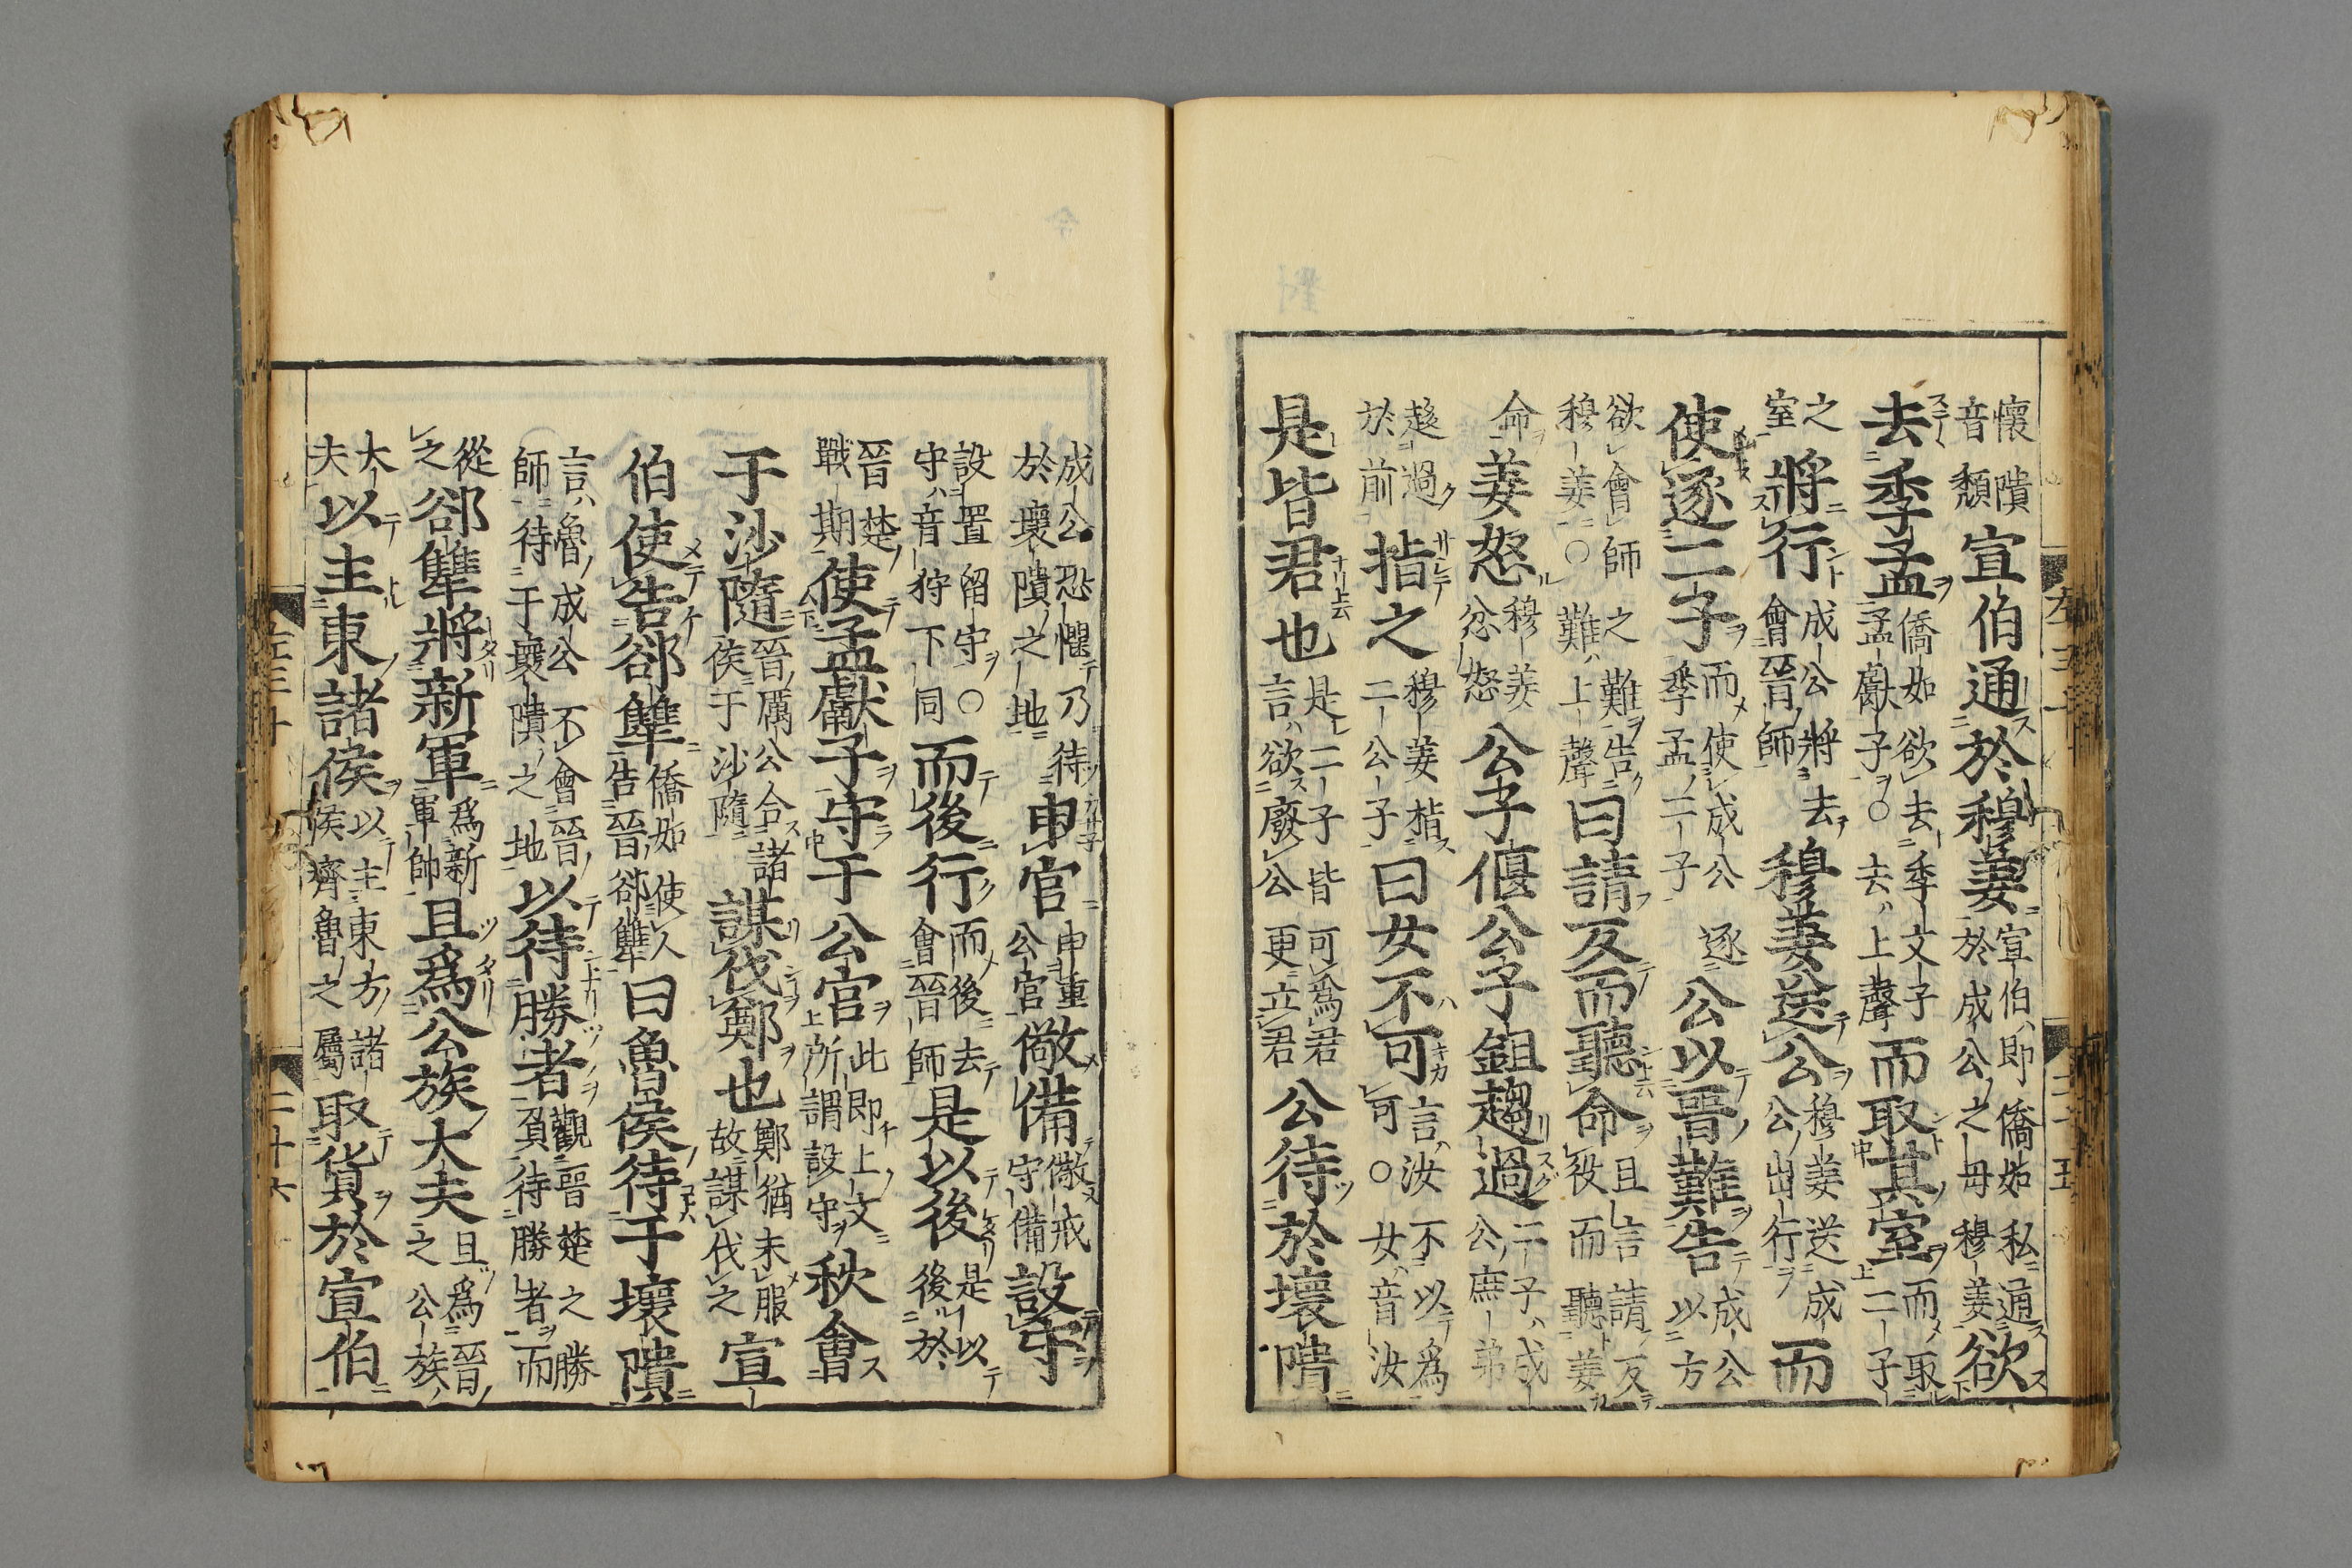 懷隤音頹宣伯通於穆姜宣伯即僑如私通於成公之母穆姜欲
去季孟僑如欲去季文子孟獻子○去上聲而取其室而取二子
之室將行成公將會晉師去穆姜送公穆姜送成公出行而
使逐二子而使成公逐季孟二子公以晉難告成公以方
欲會師之難告穆姜○難上聲曰請反而聽命且言請反役而聽姜
命姜怒穆姜忿怒公子偃公子鉏趨過二子成公庶弟
趍過於前指之穆姜指二公子曰女不可言汝不以為可○女音汝
是皆君也是二子皆可為君言欲廢公更立君公待於壞隤
成公恐懼乃待於壞隤之地申官申重公官儆備儆戒守備設守
設置留守○守音狩下同而後行而後去會晉師是以後是以後於
晉楚戰期使孟獻子守于公官此即上文所謂設守秋會
于沙隨晉厲公合諸侯于沙隨謀伐鄭也鄭猶未服故謀伐之宣
伯使告郤犨僑如使人告晉郤犨曰魯侯待于壞隤
言魯成公不會晉師待于壞隤之地以待勝者觀晉楚之勝負待勝者而
從之郤犨將新軍為新軍帥且為公族大夫且為晉之公族
大夫以主東諸侯以主東方諸侯齊魯之屬取貨於宣伯